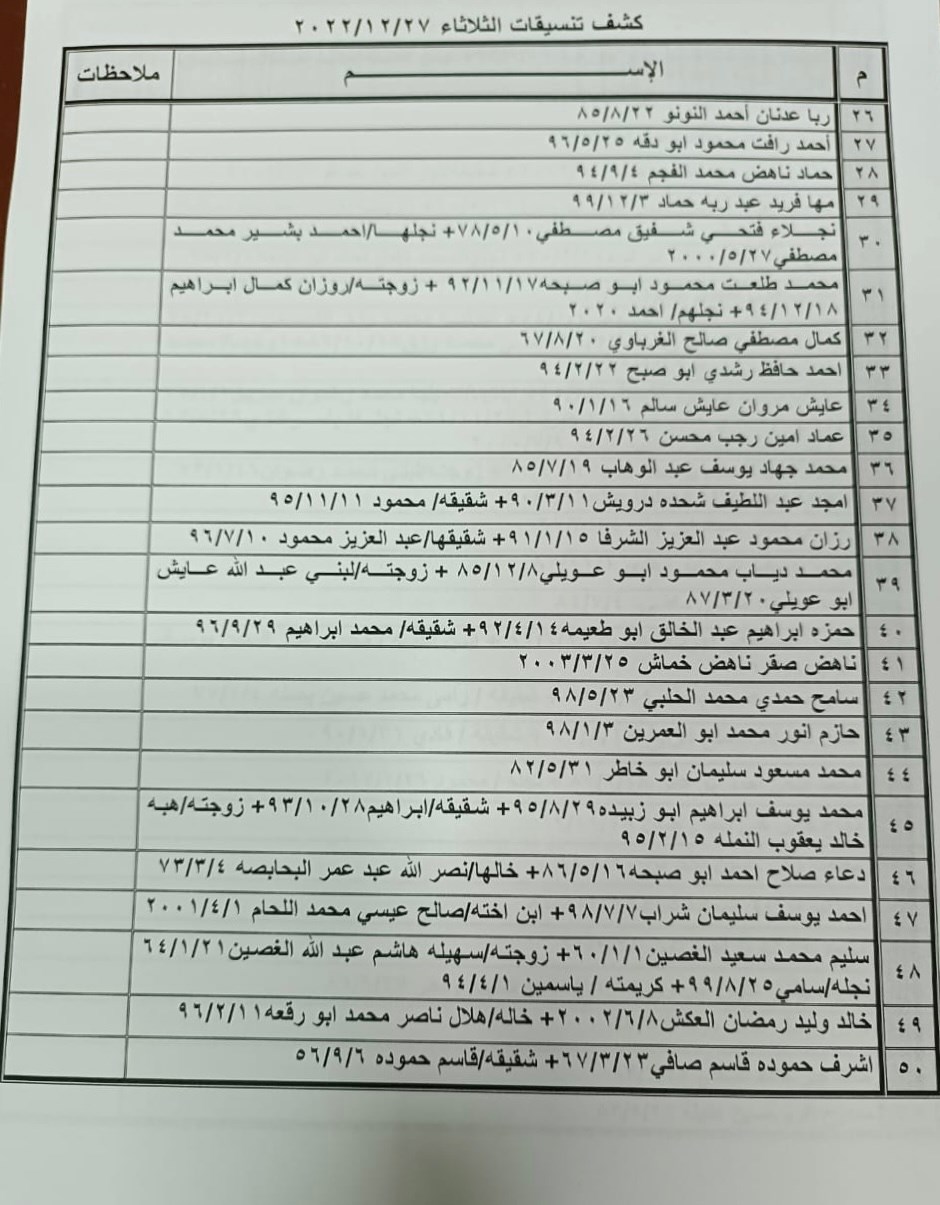 كشف تنسيقات الثلاثاء ٢٠٢٢/١٢/٢٧
م الإســـــــم ملاحظات
٢٦ ربا عدنان أحمد النونو ٨٥/٨/٢٢
٢٧ أحمد رافت محمود ابو دقه ٩٦/٥/٢٥
٢٨ حماد ناهض محمد الفجم ٩٤/٩/٤
٢٩ مها فريد عبد ربه حماد ٩٩/١٢/٣
٣٠ نجلاء فتحي شفيق مصطفي٧٨/٥/١٠+ نجلها/احمد بشير محمد
مصطفي٢٠٠٠/٥/٢٧
٣١ محمد طلعت محمود ابو صبحه٩٢/١١/١٧ + زوجته/روزان كمال ابراهيم
٩٤/١٢/١٨+ نجلهم/ احمد ٢٠٢٠
٣٢ كمال مصطفي صالح الغرباوي ٦٧/٨/٢٠
٣٣ احمد حافظ رشدي ابو صبح ٩٤/٢/٢٢
٣٤ عايش مروان عايش سالم ٩٠/١/١٦
٣٥ عماد امين رجب محسن ٩٤/٢/٢٦
٣٦ محمد جهاد يوسف عبد الوهاب ٨٥/٧/١٩
٣٧ امجد عبد اللطيف شحده درويش٩٠/٣/١١+ شقيقه/ محمود ٩٥/١١/١١
٣٨ رزان محمود عبد العزيز الشرفا ٩١/١/١٥+ شقيقها/عبد العزيز محمود ٩٦/٧/١٠
٣٩ محمد دياب محمود ابو عويلي٨٥/١٢/٨ + زوجته/لبني عبد الله عايش
ابو عويلي٨٧/٣/٢٠
٤٠ حمزه ابراهيم عبد الخالق ابو طعيمه٩٢/٤/١٤+ شقيقه/ محمد ابراهيم ٩٦/٩/٢٩
٤١ ناهض صقر ناهض خماش ٢٠٠٣/٣/٢٥
٤٢ سامح حمدي محمد الحلبي ٩٨/٥/٢٣
٤٣ حازم انور محمد ابو العمرين ٩٨/١/٣
٤٤ محمد مسعود سليمان ابو خاطر ٨٢/٥/٣١
٤٥ محمد يوسف ابراهيم ابو زبيده٩٥/٨/٢٩+ شقيقه/ابراهيم٩٣/١٠/٢٨+ زوجته/هبه
خالد يعقوب النمله ٩٥/٢/١٥
٤٦ دعاء صلاح احمد ابو صبحه٨٦/٥/١٦+ خالها/نصر الله عبد عمر البحابصه ٧٣/٣/٤
٤٧ احمد يوسف سليمان شراب٩٨/٧/٧+ ابن اخته/صالح عيسي محمد اللحام ٢٠٠١/٤/١
٤٨ سليم محمد سعيد الغصين٦٠/١/١+ زوجته/سهيله هاشم عبد الله الغصين٦٤/١/٢١
نجله/سامي٩٩/٨/٢٥+ كريمته / ياسمين ٩٤/٤/١
٤٩ خالد وليد رمضان العكش٢٠٠٢/٦/٨+ خاله/هلال ناصر محمد ابو رقعه٩٦/٢/١١
٥٠ اشرف حموده قاسم صافي٦٧/٣/٢٣+ شقيقه/قاسم حموده ٥٦/٩/٦